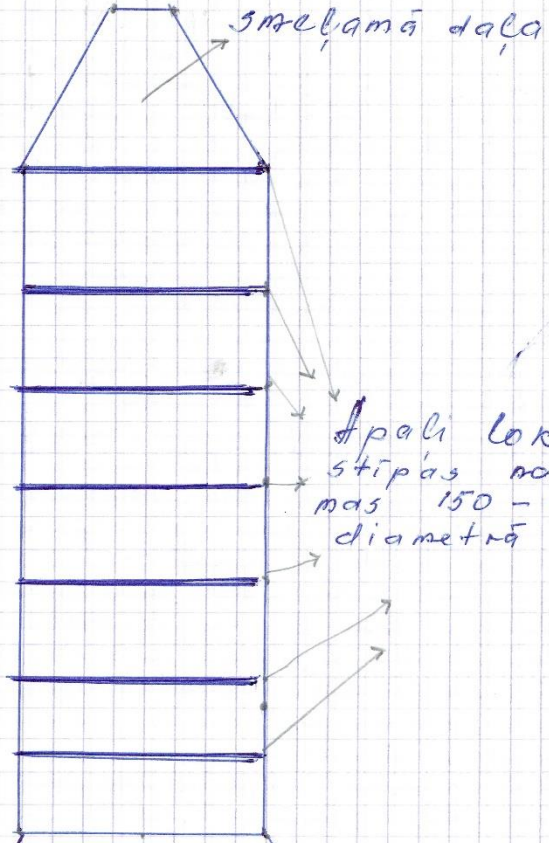 smeļamā daļa
Apaļi lok
stīpas no
mas 150 -
diametrā